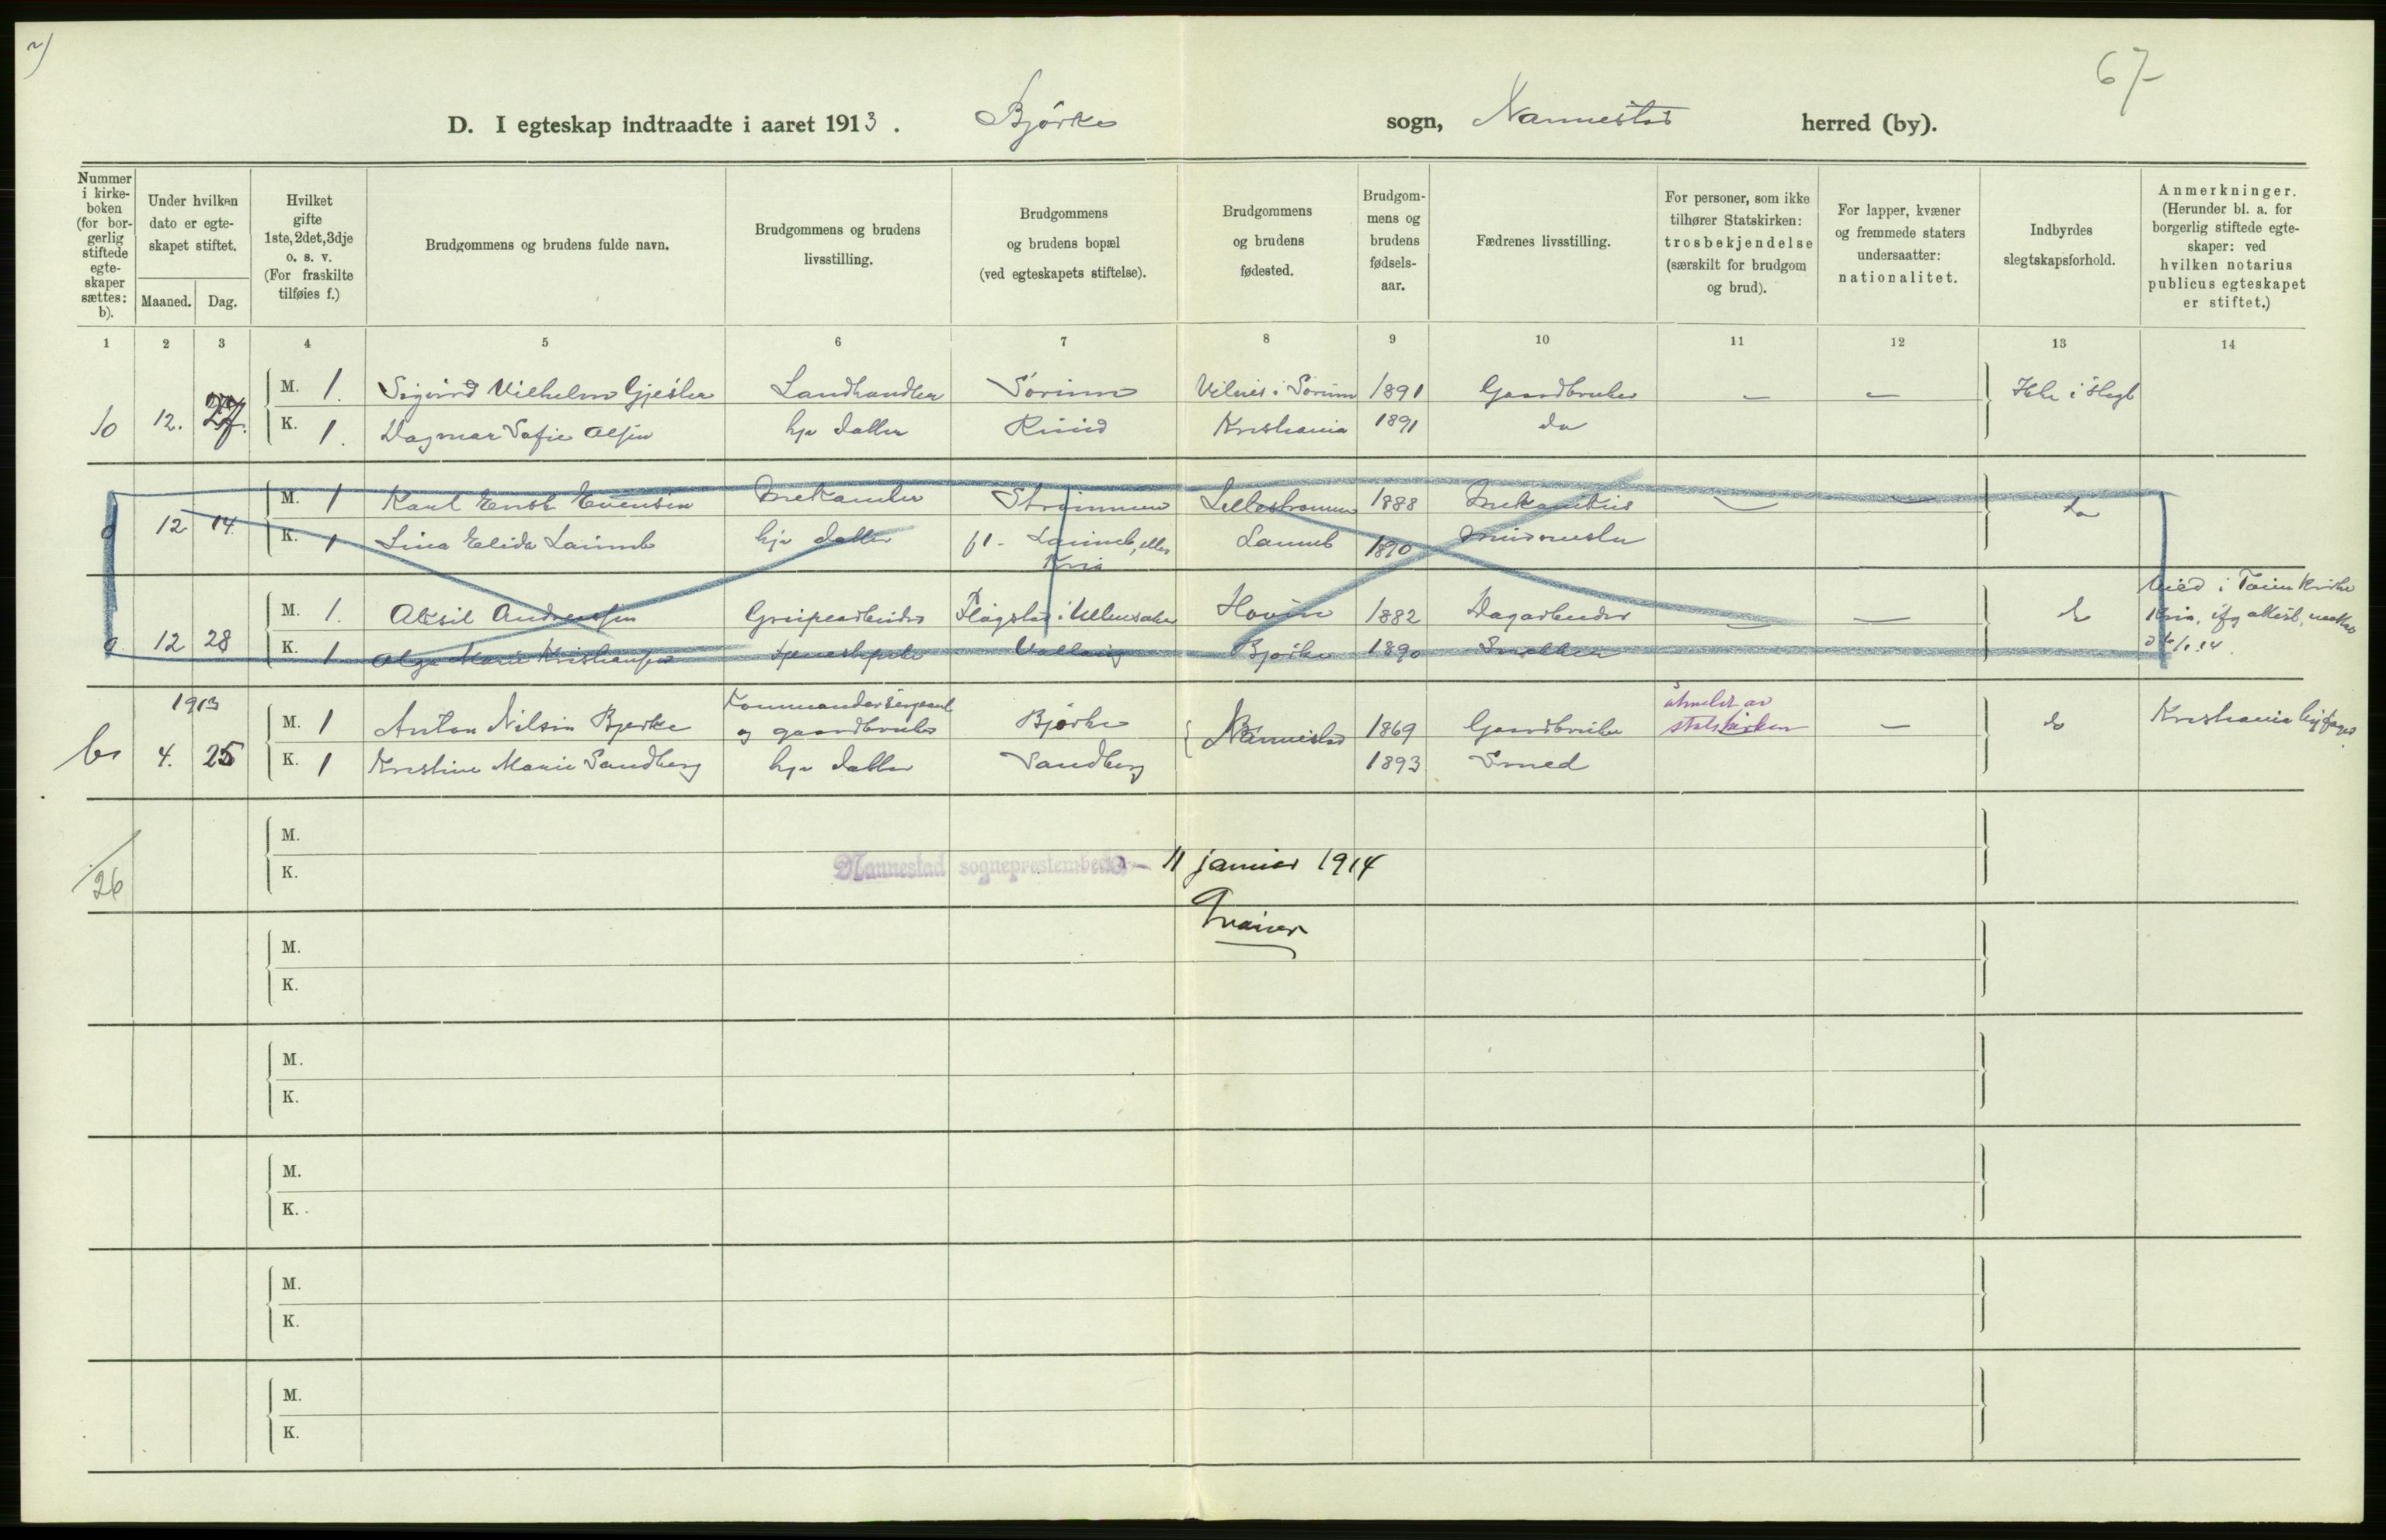 67
D. I egteskap indtraadte i aaret 1913. Bjørke sogn, Nannestad herred (by).
Nummer i kirkeboken (for borgerlig stiftede egteskaper sættes: b).
Under hvilken dato er egteskapet stiftet.
Maaned. Dag.
Hvilket gifte 1ste, 2det, 3dje o. s. v. (For fraskilte tilføies f.)
Brudgommens og brudens fulde navn.
Brudgommens og brudens livsstilling.
Brudgommens og brudens bopæl (ved egteskapets stiftelse).
Brudgommens og brudens fødested.
Brudgommens og brudens fødselsaar.
Fædrenes livsstilling.
For personer, som ikke tilhører Statskirken: trosbekjendelse (særskilt for brudgom og brud).
For lapper, kvæner og fremmede staters undersaatter: nationalitet.
Indbyrdes slegtskapsforhold.
Anmerkninger. (Herunder bl. a. for borgerlig stiftede egteskaper: ved hvilken notarius publicus egteskapet er stiftet.)
1 2 3 4 5 6 7 8 9 10 11 12 13 14
10 12. 27. M. 1. Sigurd Vilhelm Gjesler Landhandler Sörum i Sörum 1891 Gaardbruker — —
K. 1. Dagmar Sofie Olsen hjv datter Kristiania 1891 do
12 14 M. 1 Karl Evensen Mekaniker Strømmen Lillestrømmen 1888 — — do
K. 1 Lina Elida hjv datter Kria 1890 Murmester
12 28 M. 1. Aksil Andreassen i Ullensaker Hovin 1882 Dagarbeider — —
K. 1 Olga Marie Kristiansen Bjørke 1890 Snekker
viet i kirke Kria,
1913
b 4. 25 M. 1 Anton Nilsen Bjerke Kommandersergeant og gaardbruker Bjørke Nannestad 1869 Gaardbruker utmeldt av statskirken — do Kristiania byfoged.
K. 1 Kristine Marie Sandberg hjv datter Sandberg 1893 Smed
M.
K.
26
Nannestad sogneprestembede, 11 januar 1914
M.
K.
M.
K.
M.
K.
M.
K.
M.
K.